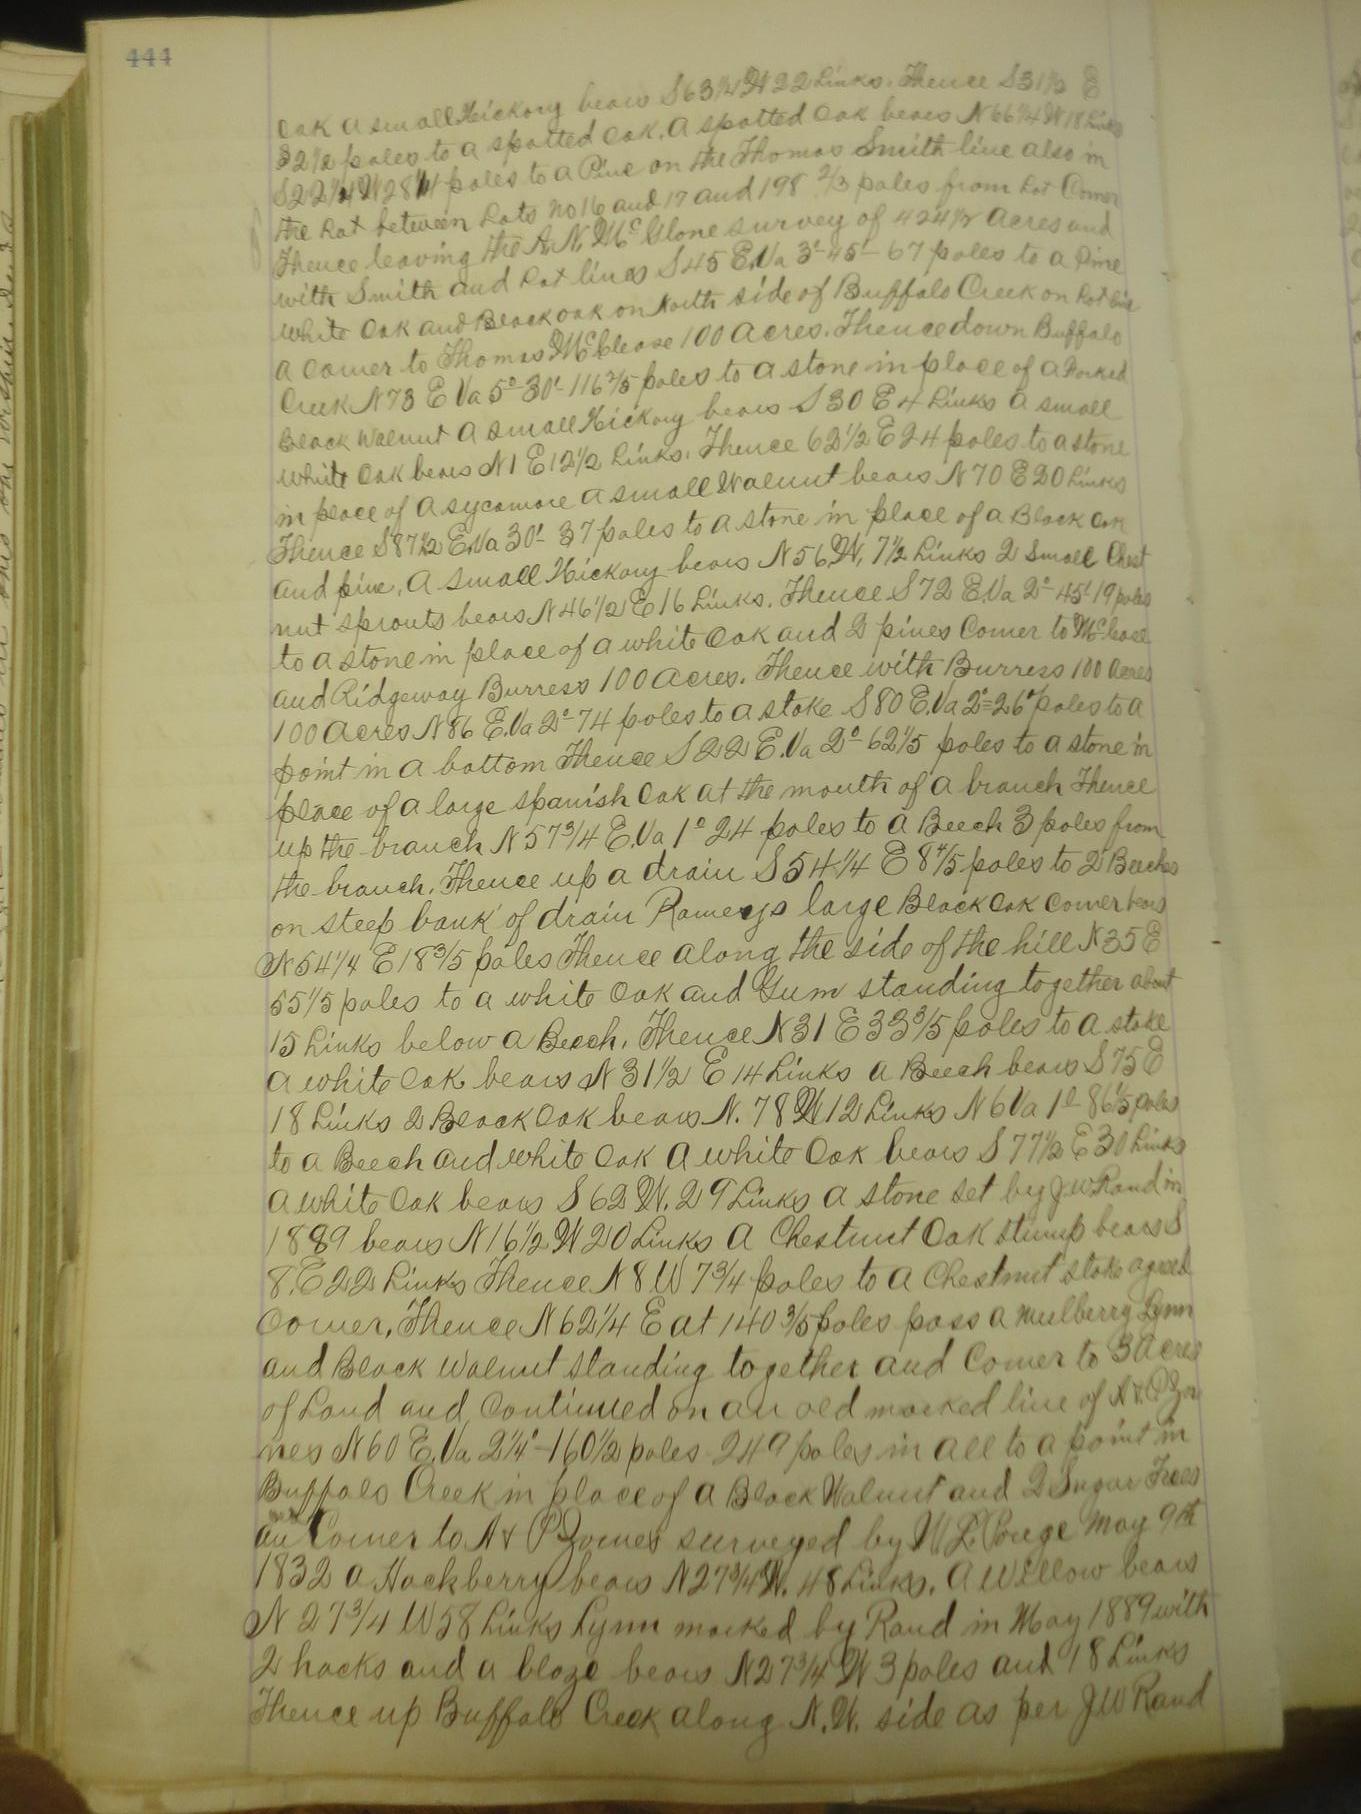 444
Oak a small Hickory bears S 63 1/2 W 22 Links. Thence S 31 1/2 E
32 1/2 poles to a spotted Oak. A spotted Oak bears N 66 1/4 W 18 Links
S 22 1/4 W 28 poles to a Pine on the Thomas Smith line also in
the Lot between Lots No 16 and 17 and 198 2/3 poles from Lot Corner
Thence leaving the A. N. McGlone survey of 424 1/2 Acres and
with Smith and Lot lines S 45 E. Va 3°-45'- 67 poles to a Pine
white Oak and Black oak on North side of Buffalo Creek on Lot line
a Corner to Thomas 100 Acres. Thence down Buffalo
Creek N 73 E Va 5°-30'- 116 2/5 poles to a stone in place of a Forked
Black Walnut a small Hickory bears S 30 E 4 Links a small
white Oak bears N 1 E 12 1/2 Links. Thence 62 1/2 E 24 poles to a stone
in place of a sycamore a small Walnut bears N 70 E 20 Links
Thence S 87 1/2 E. Va 30'- 37 poles to a stone in place of a Black Oak
and pine. A small Hickory bears N 56 W, 7 1/2 Links 2 Small Chest
nut sprouts bears N 46 1/2 E 16 Links. Thence S 72 E. Va 2°-45' 19 poles
to a stone in place of a white Oak and 2 pines Corner to
and Ridgeway Burress 100 Acres. Thence with Burress 100 Acres
100 Acres N 86 E. Va 2°- 74 poles to a stake S 80 E. Va 2°= 26 poles to a
point in a bottom Thence S 22 E. Va 2°- 62 1/5 poles to a stone in
place of a large spanish Oak at the mouth of a branch Thence
up the branch N 57 3/4 E. Va 1° 24 poles to a Beech 3 poles from
the branch. Thence up a drain S 54 1/4 E 8 4/5 poles to 2 Beeches
on steep bank of drain Rameys large Black Oak Corner bears
N 54 1/4 E 18 3/5 poles Thence along the side of the hill N 35 E
55 1/5 poles to a white Oak and Gum standing together about
15 Links below a Beech. Thence N 31 E 33 3/5 poles to a stake
a white Oak bears N 31 1/2 E 14 Links a Beech bears S 75 E
18 Links 2 Black Oak bears N. 78 W 12 Links N 6 Va 1°- 86 1/5 poles
to a Beech and white Oak A white Oak bears S 77 1/2 E 30 Links
a white Oak bears S 62 W. 29 Links a stone set by J W Rand in
1889 bears N 16 1/2 W 20 Links A Chestnut Oak stump bears S
8. E 22 Links Thence N 8 W 7 3/4 poles to a Chestnut stake agreed
Corner, Thence N 62 1/4 E at 140 3/5 poles pass a mulberry Lynn
and Black Walnut standing together and Corner to 3 Acres
of Land and Continued on an old marked line of A & P Zor
nes N 60 E. Va 2 1/4°- 160 1/2 poles 249 poles in all to a point in
Buffalo Creek in place of a Black Walnut and 2 Sugar Trees
an Corner to A & P Zornes surveyed by W L Poage May 9th
1832 a Hackberry bears N 27 3/4 W. 48 Links. A Willow bears
N 27 3/4 W 58 Links Lynn marked by Rand in May 1889 with
2 hacks and a blaze bears N 27 3/4 W 3 poles and 18 Links
Thence up Buffalo Creek along N. W. side as per J W Rand